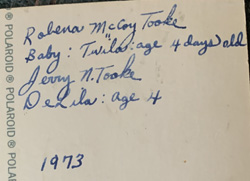 Robena McCoy Tooke
Baby: "Twila: age 4 days) old
Jerry N. Tooke
DeLila: Age 4
1973
POLAROID ® POLAROID ® POLAROID ®